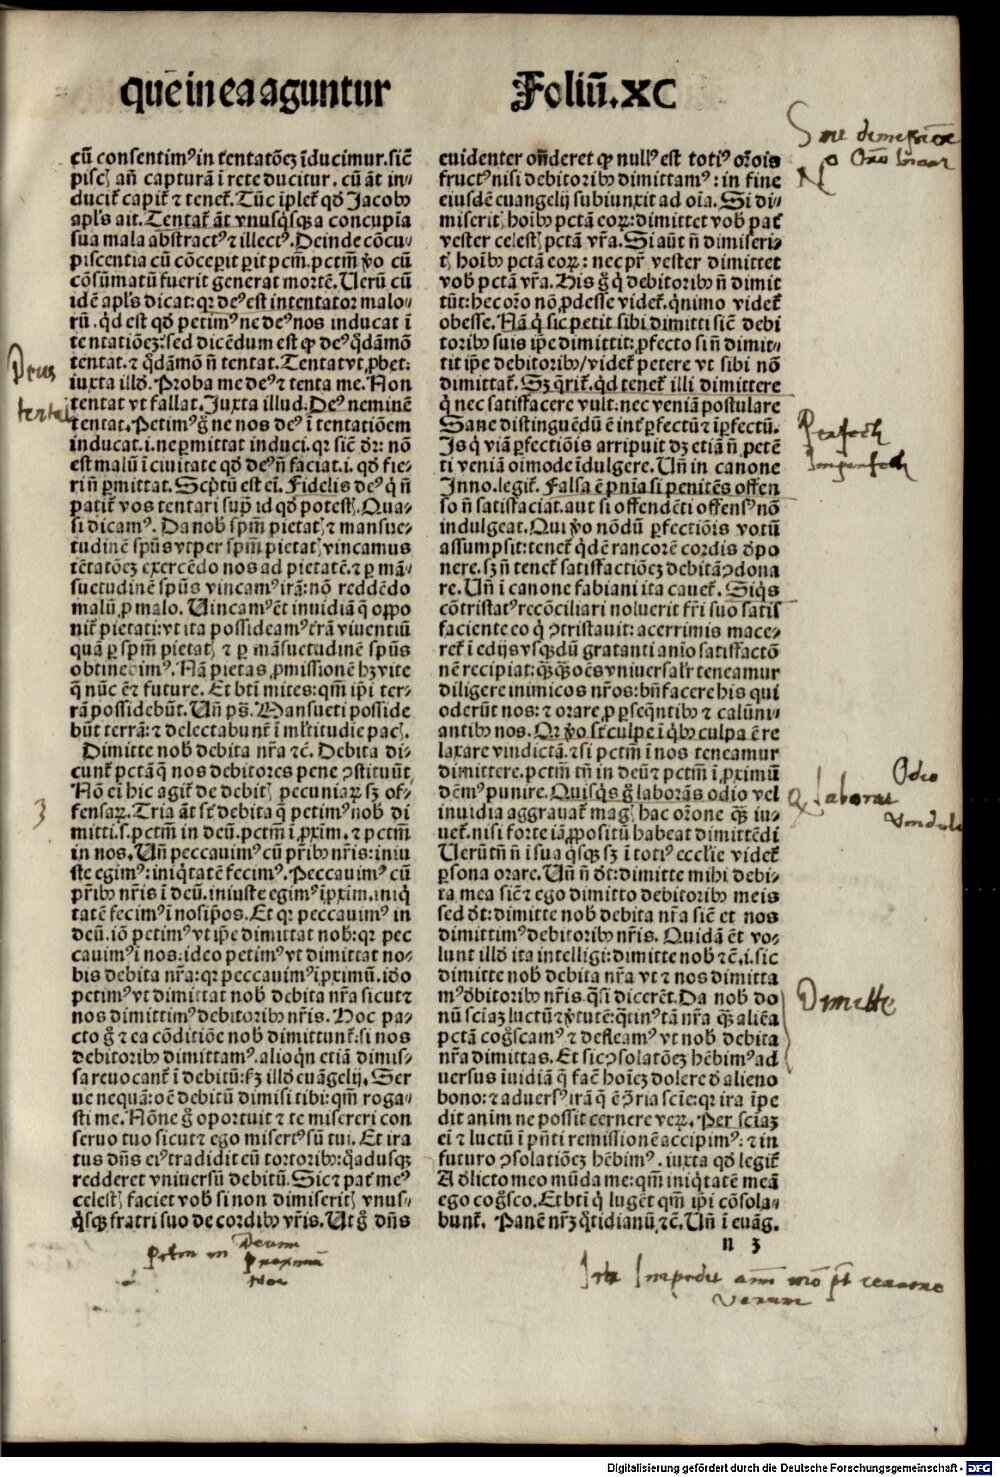 quē in ea aguntur Foliū. XC
cū consentimꝰ in tentatōeꝫ īducimur. sicē
pisc̄ an̄ capturā ī rete ducitur. cū āt in⸗
duciť capiť ⁊ teneť. Tūc īpleť qđ Jacobꝰ
apl̓s ait. Tentať āt vnusq̇sqꝫ a concupīa
sua mala abstractꝰ ⁊ illectꝰ. Deinde cōcu⸗
piscentia cū cōceperit ꝑit pctm̄. pctm̄ ꝟo cū
cōsūmatū fuerit generat mortē. Uerū cū
idē apl̓s dicat: qꝛ deꝰ est intentator malo⸗
rū. qđ est qđ petimꝰ ne deꝰ nos inducat ī
tentatiōeꝫ: sed dicēdum est ꝙ deꝰ q̇dāmō
tentat. ⁊ q̇dāmō n̄ tentat. Tentat vt ꝓbet:
iuxta illđ. Proba me deꝰ ⁊ tenta me. Non
tentat vt fallat. Juxta illud. Deꝰ neminē
tentat. Petimꝰ g̊ ne nos deꝰ ī tentatiōem
inducat. i. ne ꝑmittat induci. qꝛ sic đꝛ: nō
est malū ī ciuitate qđ deꝰ n̄ faciat. i. qđ fie⸗
ri n̄ ꝑmittat. Scptū est eī. Fidelis deꝰ q̇ n̄
patiť vos tentari supͣ id qđ potestꝭ. Qua⸗
si dicamꝰ. Da nob̄ spm̄ pietatꝭ ⁊ mansue⸗
tudinē spūs vt per spm̄ pietatꝭ vincamus
tētatōeꝫ exercēdo nos ad pietatē. ⁊ ꝑ mā⸗
suetudinē spūs vincamꝰ irā: nō reddēdo
malū ꝓ malo. Uincamꝰ ēt inuidiā q̄ oppo
niť pietati: vt ita possideamꝰ ťrā viuentiū
quā ꝑ spm̄ pietatꝭ ⁊ ꝑ māsuetudinē spūs
obtinebimꝰ. Nā pietas ꝓmissionē hꝫ vite
q̄ nūc ē ⁊ future. Et bt̄i mites: qm̄ ip̄i ter⸗
rā possidebūt. Un̄ ps̄. Mansueti posside
būt terrā: ⁊ delectabunť ī ml̓titudie pacꝭ.
Dimitte nob̄ debita nr̄a ⁊c̄. Debita di⸗
cunť pctā q̄ nos debitores pene ꝯstituūt
Nō eī hic agiť de debitꝭ pecuniaꝝ sꝫ of⸗
fensaꝝ. Tria āt st̄ debita q̄ petimꝰ nob̄ di
mitti. s. pctm̄ in deū. pctm̄ ī ꝓxim̄. ⁊ pctm̄
in nos. Un̄ peccauimꝰ cū pr̄ibꝰ nr̄is: iniu
ste egimꝰ: iniq̇tatē fecimꝰ. Peccauimꝰ cū
pr̄ibꝰ nr̄is ī deū. iniuste egimꝰ ī ꝓxim̄. iniq̇
tatē fecimꝰ ī nosip̄os. Et qꝛ peccauimꝰ in
deū. iō petimꝰ vt ip̄e dimittat nob̄: qꝛ pec
cauimꝰ ī nos: ideo petimꝰ vt dimittat no⸗
bis debita nr̄a: qꝛ peccauimꝰ ī ꝓximū. iđo
petimꝰ vt dimittat nob̄ debita nr̄a sicut ⁊
nos dimittimꝰ debitoribꝰ nr̄is. Hoc pa⸗
cto g̊ ⁊ ea cōditiōe nob̄ dimittunť: si nos
debitoribꝰ dimittamꝰ. alioq̇n etiā dimis⸗
sa reuocanť ī debitū: ẜꝫ illđ euāgelij. Ser
ue nequā: oē debitū dimisi tibi: qm̄ roga⸗
sti me. Nōne g̊ oportuit ⁊ te misereri con
seruo tuo sicut ⁊ ego misertꝰ sū tui. Et ira
tus dn̄s eiꝰ tradidit eū tortoribꝰ: q̇adusqꝫ
redderet vniuersū debitū. Sic ⁊ pať meꝰ
celestꝭ faciet vob̄ si non dimiseritꝭ vnus⸗
q̇sqꝫ fratri suo de cordibꝰ vr̄is. Ut g̊ dn̄s
euidenter on̄deret ꝙ nullꝰ est totiꝰ or̄ois
fructꝰ nisi debitoribꝰ dimittamꝰ: in fine
eiusdē euangelij subiunxit ad oīa. Si di⸗
miseritꝭ hoībꝰ pctā eoꝝ: dimittet vob̄ pať
vester celestꝭ pctā vr̄a. Si aūt n̄ dimiseri⸗
tꝭ hoībꝰ pctā eoꝝ: nec pr̄ vester dimittet
vob̄ pctā vr̄a. His g̊ q̇ debitoribꝰ n̄ dimit
tūt: hec or̄o nō ꝓdesse videť. q̇nimo videť
obesse. Nā q̇ sic petit sibi dimitti sicē debi
toribꝰ suis ip̄e dimittit: ꝓfecto si n̄ dimit⸗
tit ip̄e debitoribꝰ/ videť petere vt sibi nō
dimittať. Sꝫ q̄riť. qđ teneť illi dimittere
q̇ nec satisfacere vult: nec veniā postulare
Sane distinguēdū ē inť ꝑfectū ⁊ īꝑfectū.
Js q̇ viā ꝑfectiōis arripuit dꝫ etiā n̄ petē
ti veniā oīmode īdulgere. Un̄ in canone
Inno. legiť. Falsa ē pn̄ia si penitēs offen
so n̄ satisfaciat. aut si offendēti offensꝰ nō
indulgeat. Qui ꝟo nōdū ꝑfectiōis votū
assumpsit: teneť q̇dē rancorē cordis đpo
nere. sꝫ n̄ teneť satisfactiōeꝫ debitā ꝯdona
re. Un̄ ī canone fabiani ita caueť. Siq̇s
cōtristatꝰ recōciliari noluerit fr̄i suo satis
faciente eo q̇ ꝯtristauit: acerrimis mace⸗
reť ī edijs vsqꝫdū gratanti anīo satisfactō
nē recipiat: q̄ꝙ oēs vniuersalr̄ teneamur
diligere inimicos nr̄os: bn̄facere his qui
oderūt nos: ⁊ orare ꝓ ꝑseq̄ntibꝰ ⁊ calūni⸗
antibꝰ nos. Qꝛ ꝟo st̄ culpe ī q̇bꝰ culpa ē re
laxare vindictā. ⁊ si pctm̄ ī nos teneamur
dimittere. pctm̄ tn̄ in deū ⁊ pctm̄ ī ꝓximū
dēmꝰ punire. Quisq̇s g̊ laborās odio vel
inuidia aggrauať magꝭ hac or̄one q̄ꝫ iu⸗
ueť. nisi forte iā ꝓpositū habeat dimittēdi
Uerūtn̄ n̄ ī sua q̇sqꝫ sꝫ ī totiꝰ ecclīe videť
ꝑsona orare. Un̄ n̄ đt: dimitte mihi debi⸗
ta mea sicē ⁊ ego dimitto debitoribꝰ meis
sed đt: dimitte nob̄ debita nr̄a sicē et nos
dimittimꝰ debitoribꝰ nr̄is. Quidā ēt vo⸗
lunt illđ ita intelligi: dimitte nob̄ ⁊c̄. i. sic
dimitte nob̄ debita nr̄a vt ⁊ nos dimitta
mꝰ đbitoribꝰ nr̄is. q̇si dicerēt. Da nob̄ do
nū sciaꝫ luctū ⁊ ꝟtutē: q̇tinꝰ tā nr̄a q̄ꝫ aliēa
pctā cog̊scamꝰ ⁊ defleamꝰ vt nob̄ debita
nr̄a dimittas. Et sic ꝯsolatōeꝫ hēbimꝰ ad
uersus īuidiā q̄ facē hoīeꝫ dolere đ alieno
bono: ⁊ aduersꝰ irā q̄ ē ꝯ̄ria scīe: qꝛ ira īpe
dit anīm ne possit cernere veꝝ. Per sciaꝫ
eī ⁊ luctū ī pn̄ti remissionē accipimꝰ: ⁊ in
futuro ꝯsolatōeꝫ hēbimꝰ. iuxta qđ legiť
A đlicto meo mūda me: qm̄ iniq̇tatē meā
ego cog̊sco. Et bt̄i q̇ lugēt qm̄ ip̄i cōsola⸗
bunť. Panē nr̄ꝫ q̇tidianū ⁊c̄. Un̄ ī euāg.
n 3
Deus
tentat
3
Perfecti
Imperfecti
Odio
laborat
Dimitte
Deum
Proximum
Nos
Ira Impedit
verum
Digitalisierung gefördert durch die Deutsche Forschungsgemeinschaft - DFG